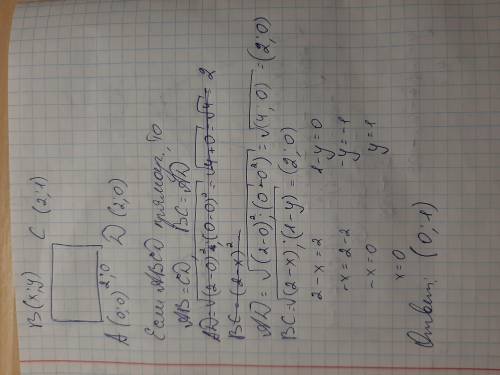 B(x;y) C (2;1)
A (0;0) 2;0 D (2;0)
Если ABCD прямоуг, то
AB=CD, BC=AD
AD=√(2-0)²+(0-0)²=√4+0=√4=2
BC=(2-x)²
AD=√(2-0)²;(0-0²)=√(4;0)=(2;0)
BC=√(2-x);(1-y)=(2;0)
2-x=2 1-y=0
-x=2-2 -y=-1
-x=0 y=1
x=0
Ответ: (0;1)